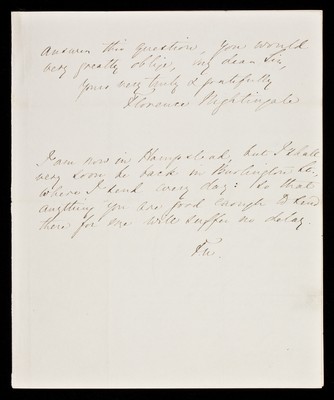 answer this question, you would
very greatly oblige, my dear Sir,
yours very truly & gratefully
Florence Nightingale
I am now in Hampstead, but I shall
very soon be back in Burlington St.
where I send every day: so that
anything you are good enough to send
there for me will suffer no delay.